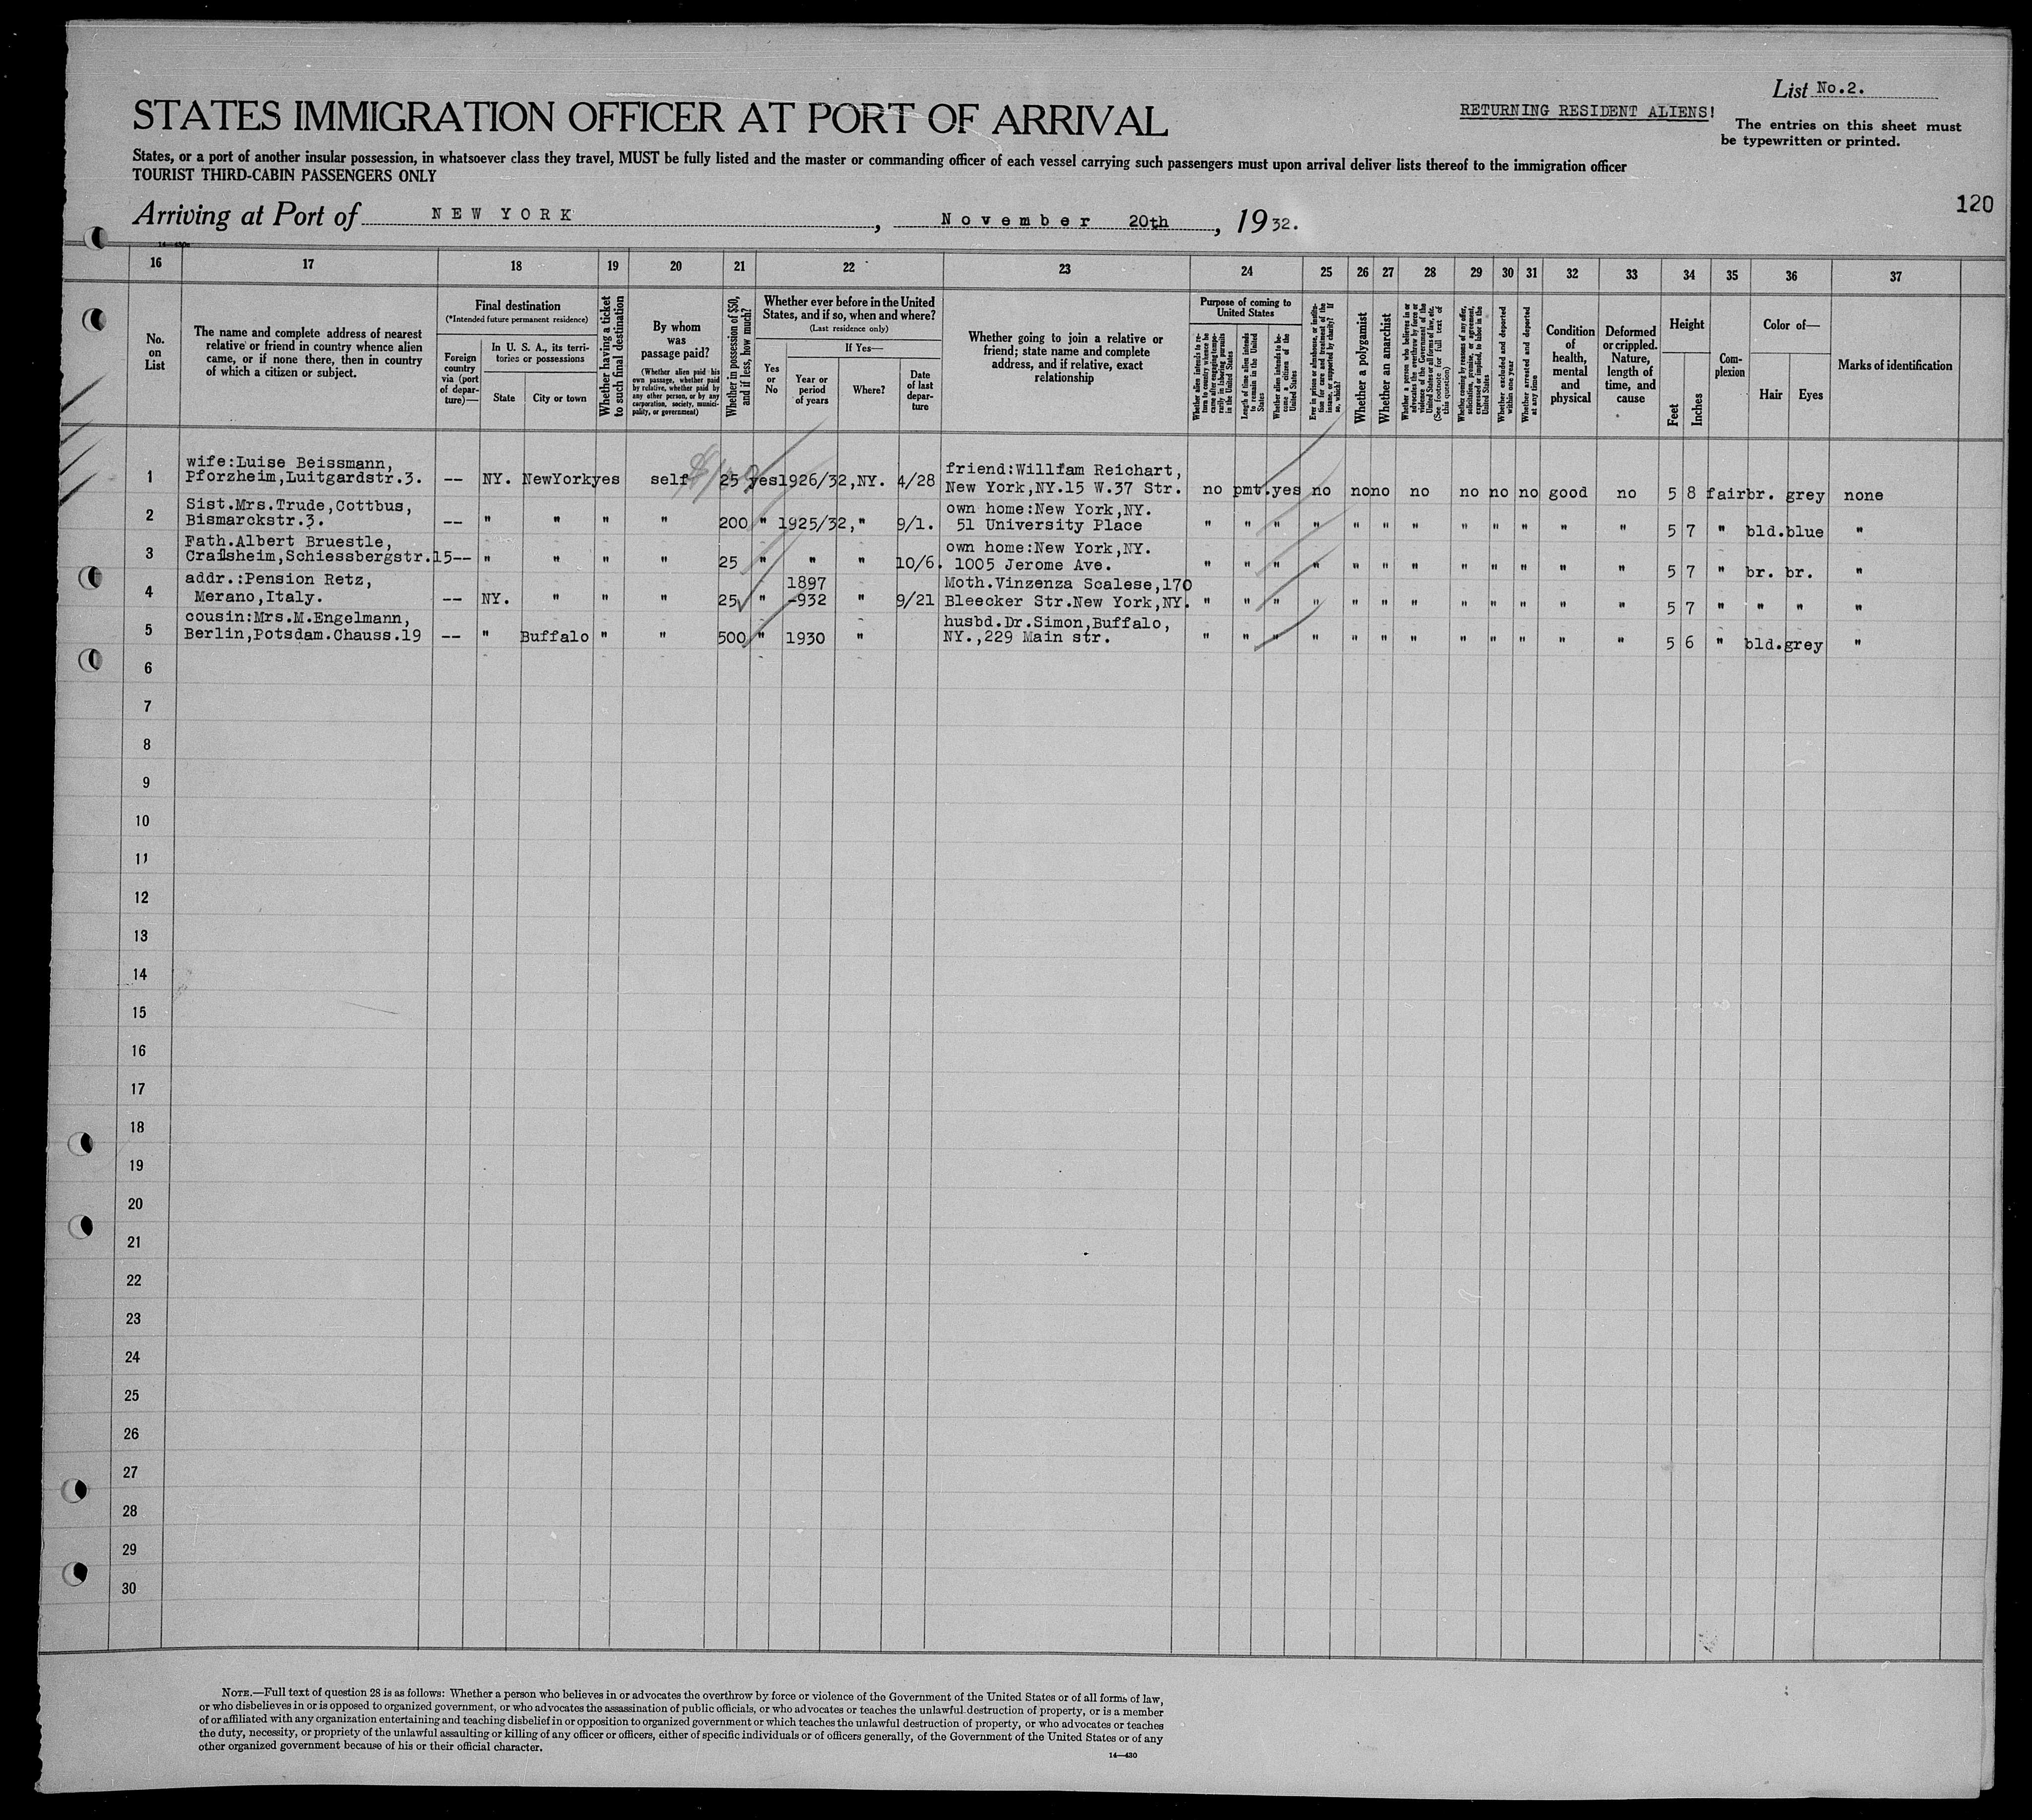 List No.2.
STATES IMMIGRATION OFFICER AT PORT OF ARRIVAL
RETURNING RESIDENT ALIENS!
The entries on this sheet must
be typewritten or printed.
States, or a port of another insular possession, in whatsoever class they travel, MUST be fully listed and the master or commanding officer of each vessel carrying such passengers must upon arrival deliver lists thereof to the immigration officer
TOURIST THIRD-CABIN PASSENGERS ONLY
120
Arriving at Port of NEW YORK, November 20th, 1932.
14—430a
16 17 18 19 20 21 22 23 24 25 26 27 28 29 30 31 32 33 34 35 36 37
No.
on
List
The name and complete address of nearest
relative or friend in country whence alien
came, or if none there, then in country
of which a citizen or subject.
Final destination
(*Intended future permanent residence)
Foreign
country
via (port
of depar-
ture)—
In U. S. A., its terri-
tories or possessions
State
City or town
Whether having a ticket
to such final destination
By whom
was
passage paid?
(Whether alien paid his
own passage, whether paid
by relative, whether paid by
any other person, or by any
corporation, society, munici-
pality, or government)
Whether in possession of $50,
and if less, how much?
Whether ever before in the United
States, and if so, when and where?
(Last residence only)
Yes
or
No
If Yes—
Year or
period
of years
Where?
Date
of last
depar-
ture
Whether going to join a relative or
friend; state name and complete
address, and if relative, exact
relationship
Purpose of coming to
United States
Whether alien intends to re-
turn to country whence he
came after engaging tempo-
rarily in laboring pursuits
in the United States
Length of time alien intends
to remain in the United
States
Whether alien intends to be-
come a citizen of the
United States
Ever in prison or almshouse, or institu-
tion for care and treatment of the
insane, or supported by charity? If
so, which?
Whether a polygamist
Whether an anarchist
Whether a person who believes in or
advocates the overthrow by force or
violence of the Government of the
United States or all forms of law, etc.
(See footnote for full text of
this question)
Whether coming by reasons of any offer,
solicitation, promise, or agreement,
expressed or implied, to labor in the
United States
Whether excluded and deported
within one year
Whether arrested and deported
at any time
Condition
of
health,
mental
and
physical
Deformed
or crippled.
Nature,
length of
time, and
cause
Height
Feet
Inches
Com-
plexion
Color of—
Hair
Eyes
Marks of identification
wife:Luise Beissmann,
friend:William Reichart,
1 Pforzheim,Luitgardstr.3. -- NY. NewYork yes self 25 yes 1926/32,NY. 4/28 New York,NY.15 W.37 Str. no pmt. yes no no no no no no no good no 5 8 fair br. grey none
Sist.Mrs.Trude,Cottbus,
own home:New York,NY.
2 Bismarckstr.3. -- " " " " 200 " 1925/32," 9/1. 51 University Place " " " " " " " " " " " " 5 7 " bld. blue "
Fath.Albert Bruestle,
own home:New York,NY.
3 Crailsheim,Schiessbergstr.15-- " " " " 25 " " " 10/6. 1005 Jerome Ave. " " " " " " " " " " " " 5 7 " br. br. "
addr.:Pension Retz,
1897
Moth.Vinzenza Scalese,170
4 Merano,Italy. -- NY. " " " 25 " -932 " 9/21 Bleecker Str.New York,NY. " " " " " " " " " " " " 5 7 " " " "
cousin:Mrs.M.Engelmann,
husbd.Dr.Simon,Buffalo,
5 Berlin,Potsdam.Chauss.19 -- " Buffalo " " 500 " 1930 " NY.,229 Main str. " " " " " " " " " " " " 5 6 " bld. grey "
6
7
8
9
10
11
12
13
14
15
16
17
18
19
20
21
22
23
24
25
26
27
28
29
30
NOTE.—Full text of question 28 is as follows: Whether a person who believes in or advocates the overthrow by force or violence of the Government of the United States or of all forms of law,
or who disbelieves in or is opposed to organized government, or who advocates the assassination of public officials, or who advocates or teaches the unlawful destruction of property, or is a member
of or affiliated with any organization entertaining and teaching disbelief in or opposition to organized government or which teaches the unlawful destruction of property, or who advocates or teaches
the duty, necessity, or propriety of the unlawful assaulting or killing of any officer or officers, either of specific individuals or of officers generally, of the Government of the United States or of any
other organized government because of his or their official character.
14—430